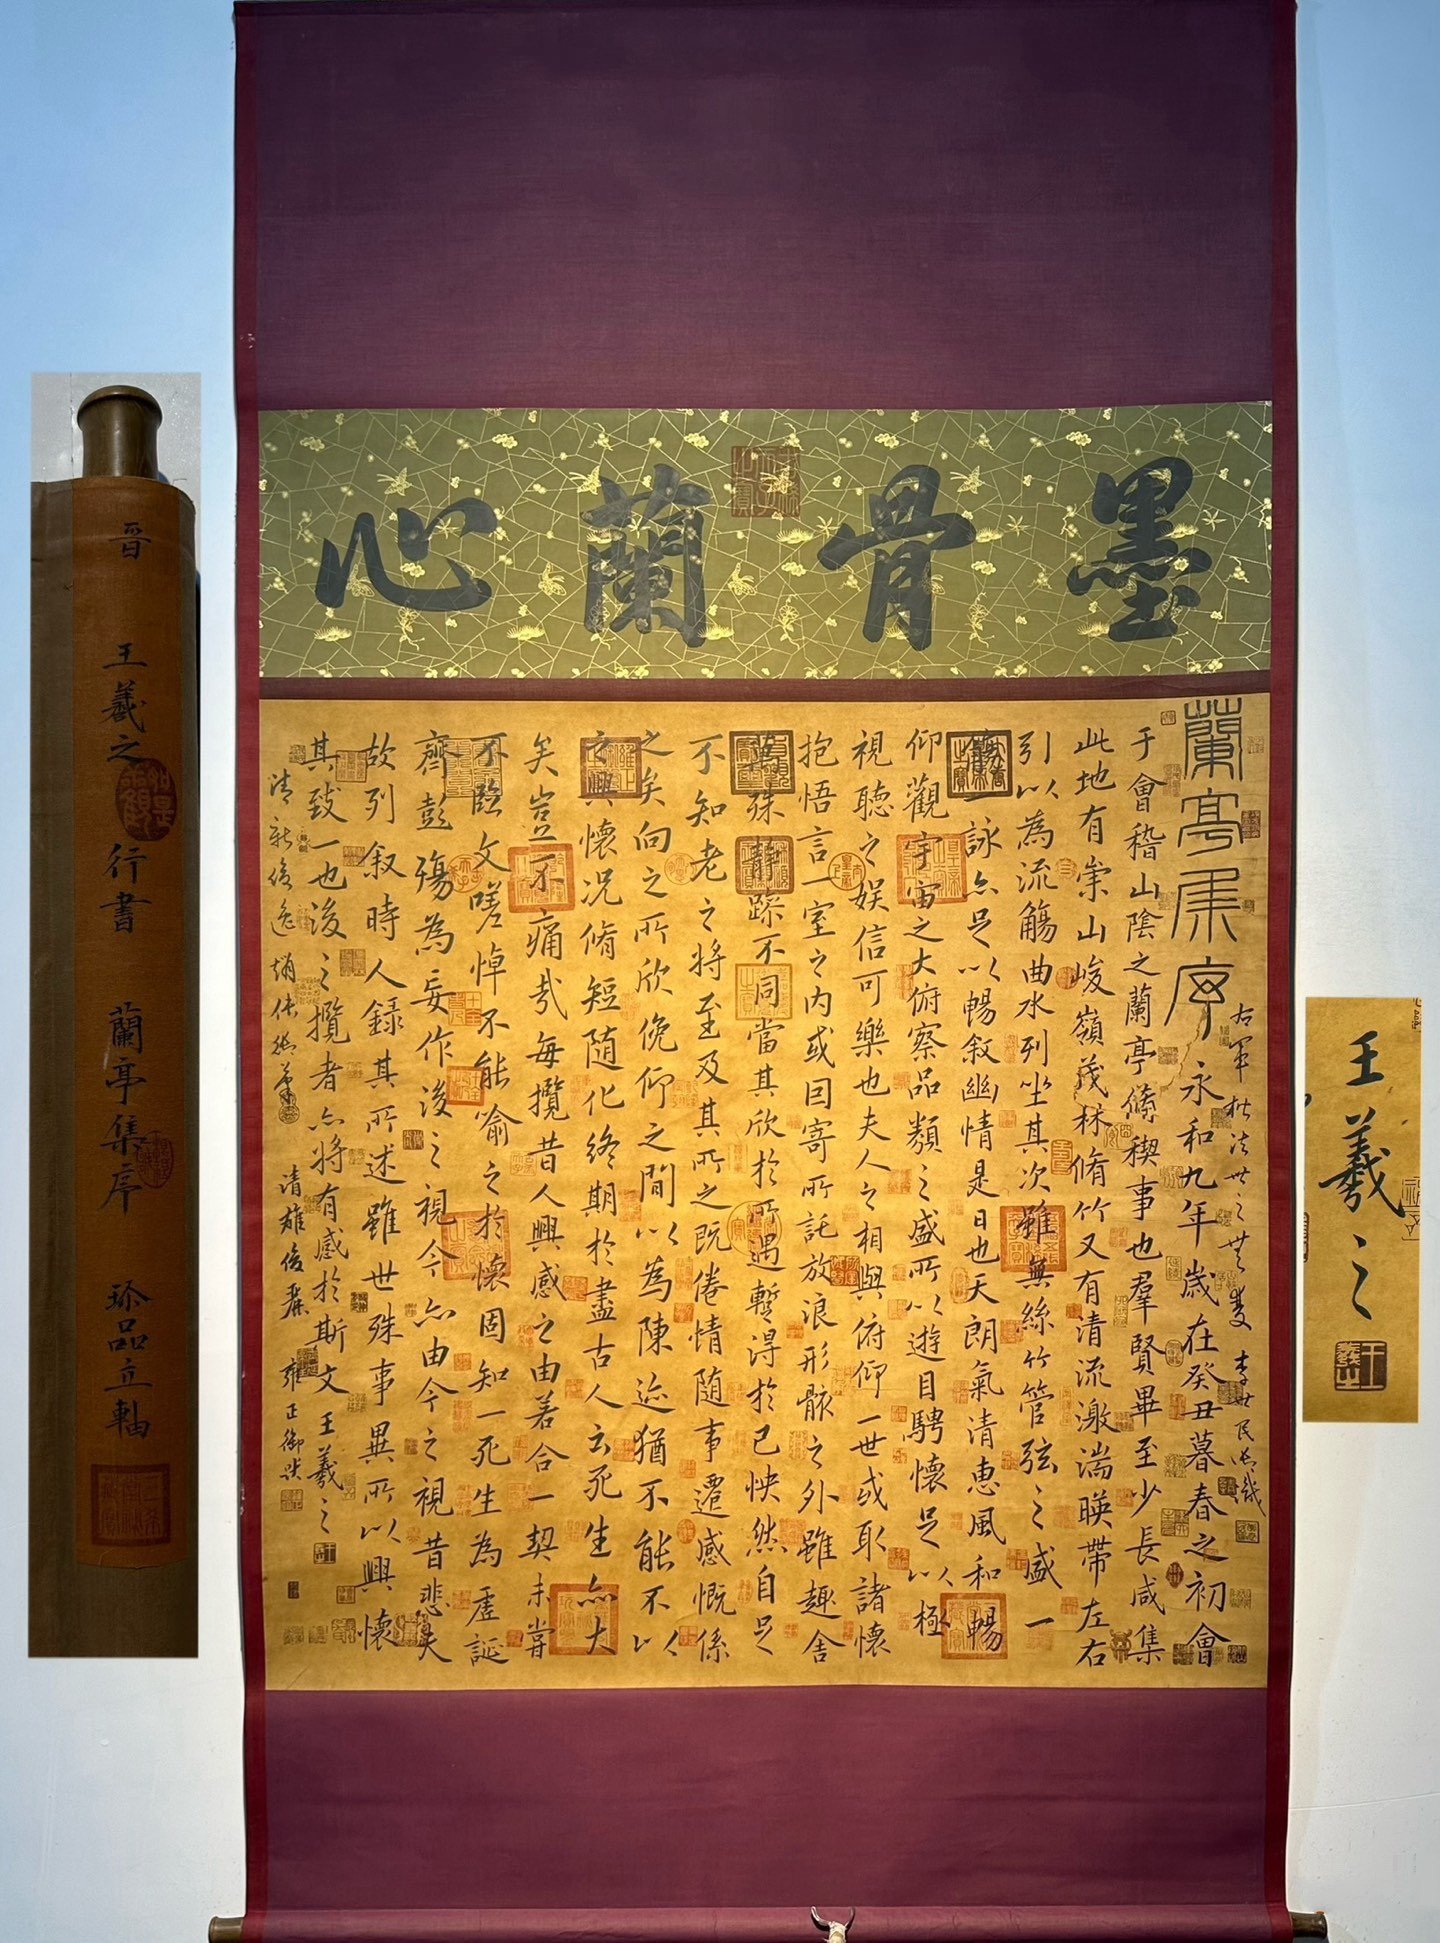 墨骨蘭心
右軍楷法世之無雙 李世民
蘭亭集序
永和九年歲在癸丑暮春之初會
于會稽山陰之蘭亭脩稧事也羣賢畢至少長咸集
此地有崇山峻嶺茂林脩竹又有清流激湍暎帶左右
引以為流觴曲水列坐其次雖無絲竹管弦之盛一
觴一詠亦足以暢敘幽情是日也天朗氣清惠風和暢
仰觀宇宙之大俯察品類之盛所以遊目騁懷足以極
視聽之娛信可樂也夫人之相與俯仰一世或取諸懷
抱悟言一室之內或因寄所託放浪形骸之外雖趣舍
萬殊靜躁不同當其欣於所遇暫得於己怏然自足
不知老之將至及其所之既倦情隨事遷感慨係
之矣向之所欣俛仰之間以為陳迹猶不能不以
之興懷況脩短隨化終期於盡古人云死生亦大
矣豈不痛哉每攬昔人興感之由若合一契未嘗
不臨文嗟悼不能喻之於懷固知一死生為虛誕
齊彭殤為妄作後之視今亦由今之視昔悲夫
故列叙時人録其所述雖世殊事異所以興懷
其致一也後之攬者亦將有感於斯文 王羲之
清新俊逸 趙佶御筆 清雄俊麗 雍正御跋
晋 王羲之 行書 蘭亭集序 珍品立軸
王羲之